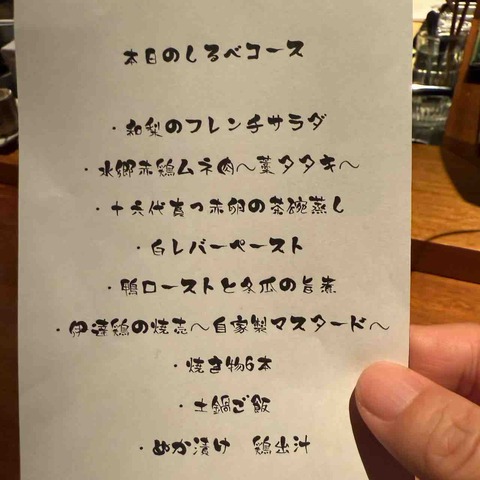 本日のしるべコース
・和梨のフレンチサラダ
・水郷赤鶏ムネ肉〜藁タタキ〜
・十六代真っ赤卵の茶碗蒸し
・白レバーペースト
・鴨ローストと冬瓜の旨煮
・伊達鶏の焼売〜自家製マスタード〜
・焼き物6本
・土鍋ご飯
・ぬか漬け 鶏出汁